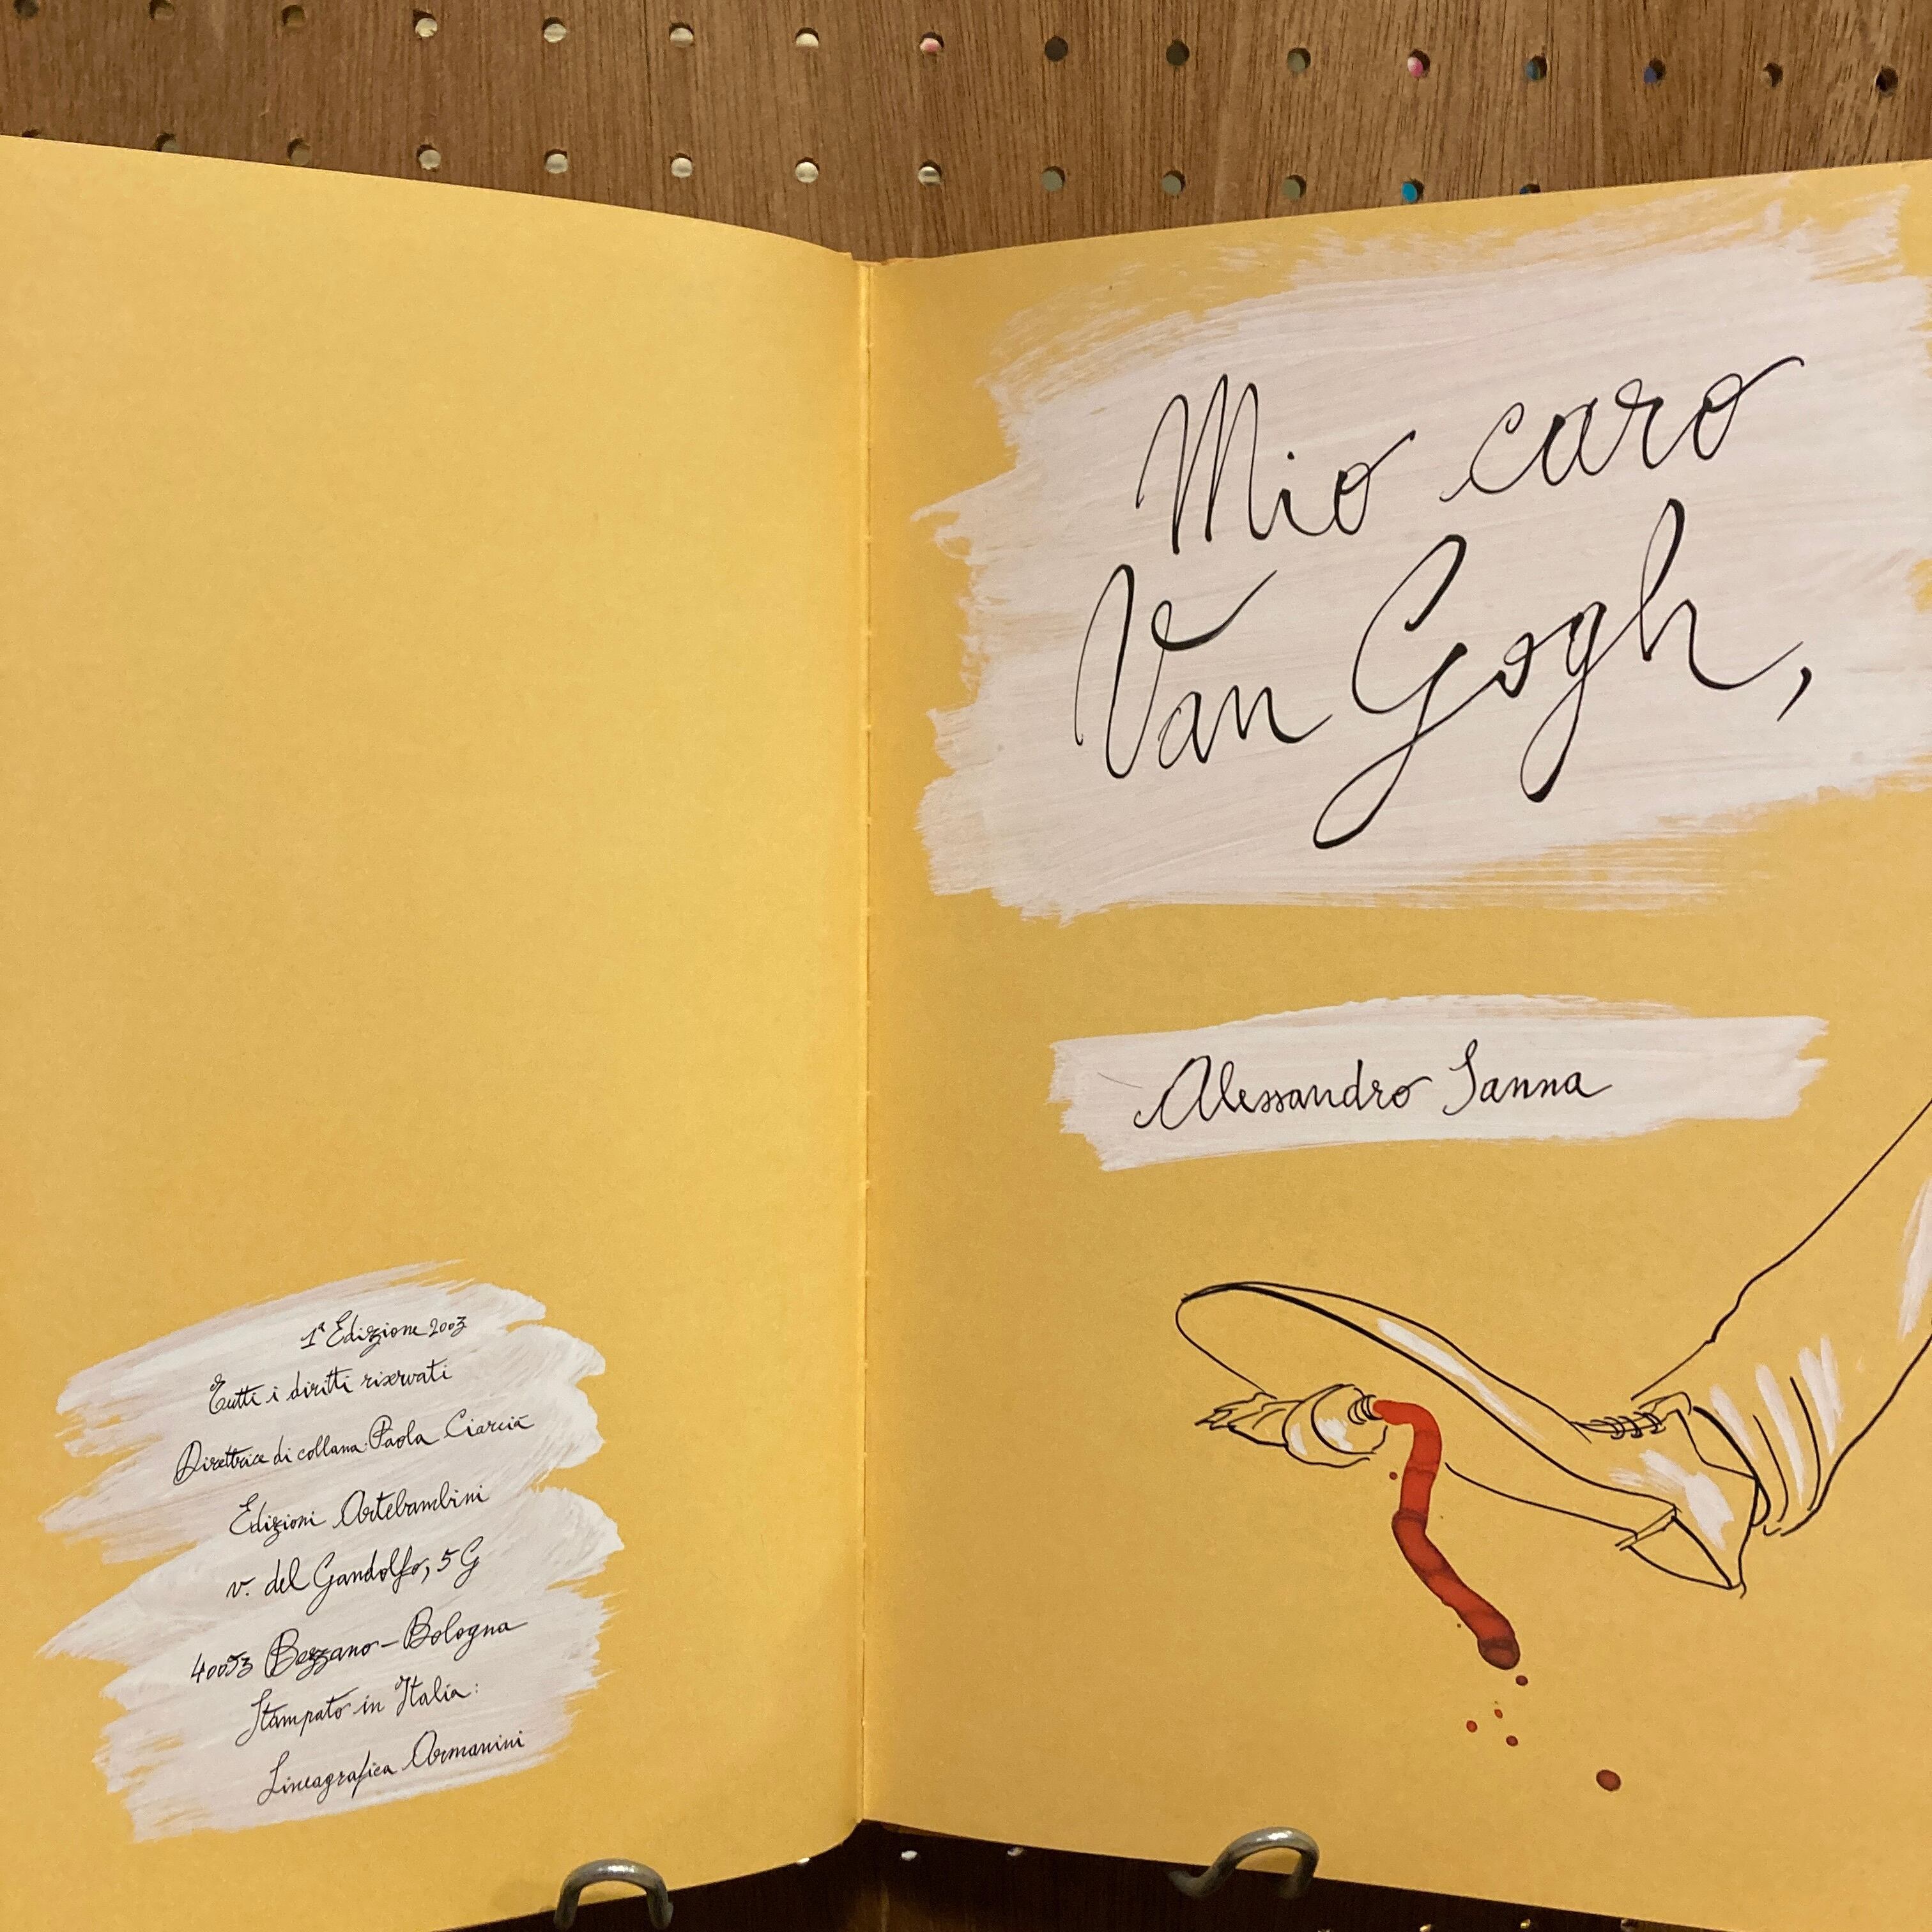 1ª Edizione 2003
Tutti i diritti riservati
Direttrice di collana: Paola Ciarcià
Edizioni Artebambini
v. del Gandolfo, 5 G
40053 Bazzano - Bologna
Stampato in Italia:
Lineagrafica Armanini
Mio caro
Van Gogh,
Alessandro Sanna